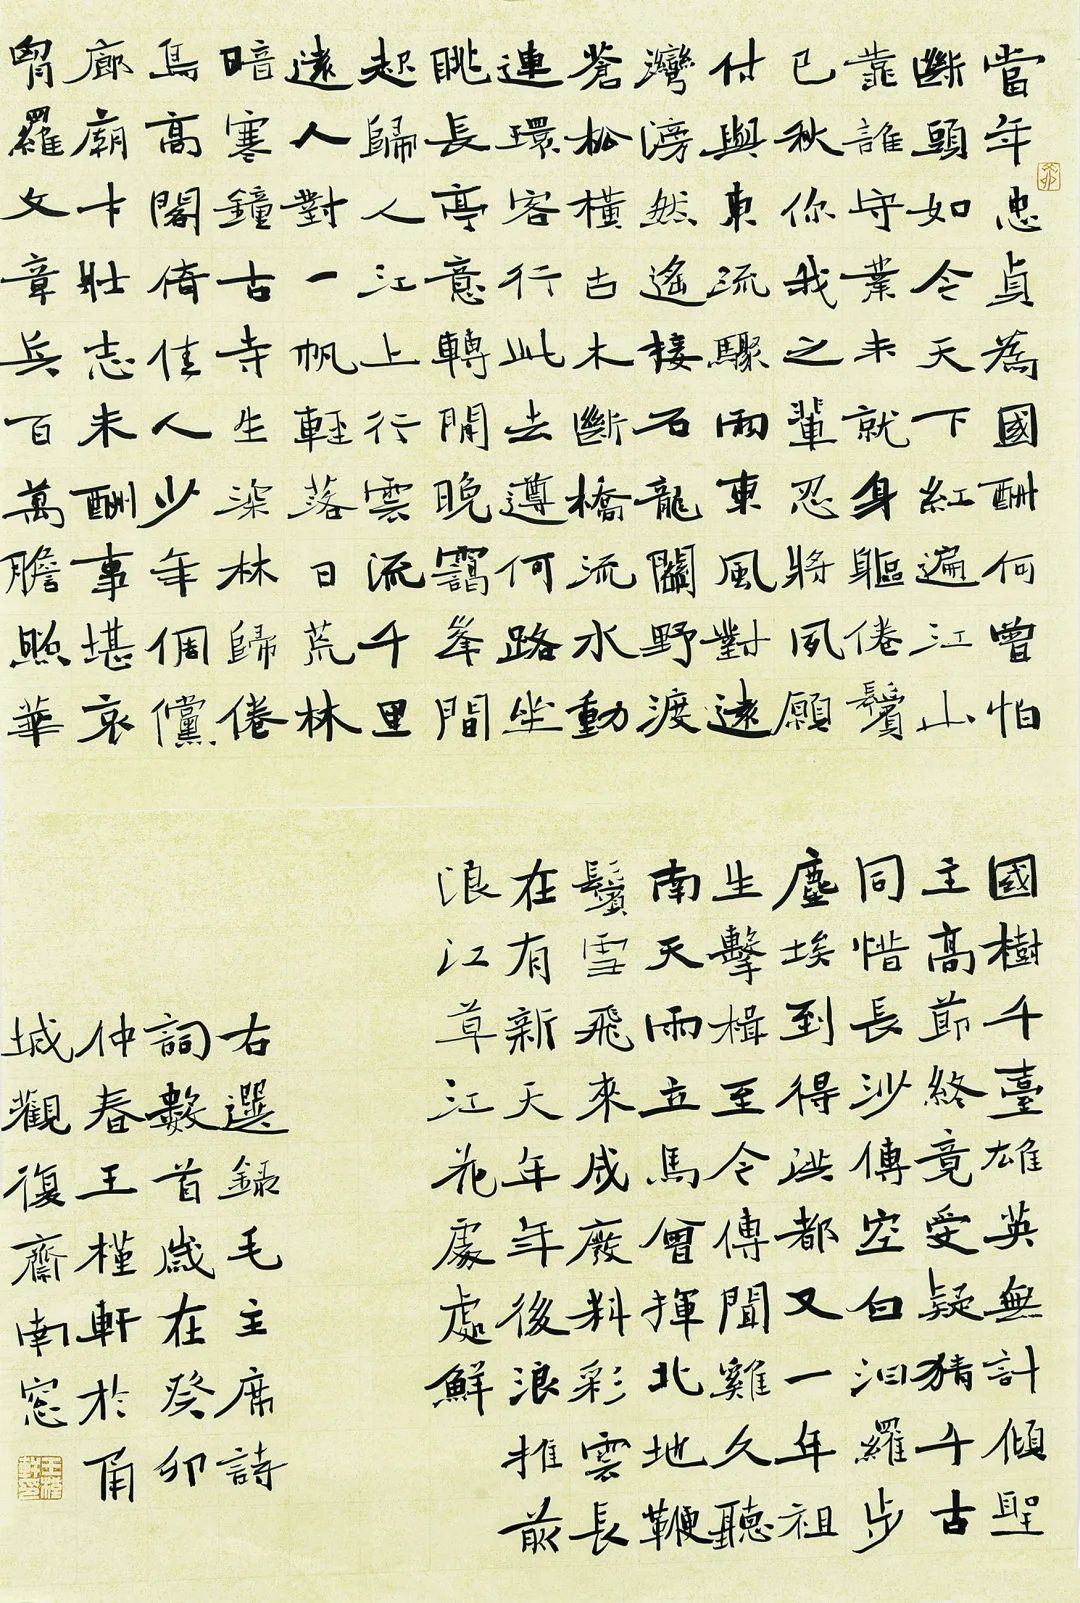 當年忠貞為國酬何曾怕
斷頭如今天下紅遍江山
靠誰守業未就身軀倦鬢
已秋你我之輩忍將夙願
付與東流驟雨東風對遠
灣滂然遙接石龍關野渡
蒼松橫古木斷橋流水動
連環客行此去遵何路坐
眺長亭意轉閒晚靄峯間
起歸人江上行雲流千里
遠人對一帆輕落日荒林
暗寒鐘古寺生深林歸倦
鳥高閣倚佳人少年倜儻
廊廟才壯志未酬事堪哀
胷羅文章兵百萬膽照華
國樹千臺雄英無計傾聖
主高節終竟受疑猜千古
同惜長沙傳空白汨羅步
塵埃到得洪都又一年祖
生擊楫至今傳聞雞久聽
南天雨立馬曾揮北地鞭
鬢雪飛來成廢料彩雲長
在有新天年年後浪推前
浪江草江花處處鮮
右選錄毛主席詩
詞數首歲在癸卯
仲春王槿軒於甬
城觀復齋南窓
王槿軒印